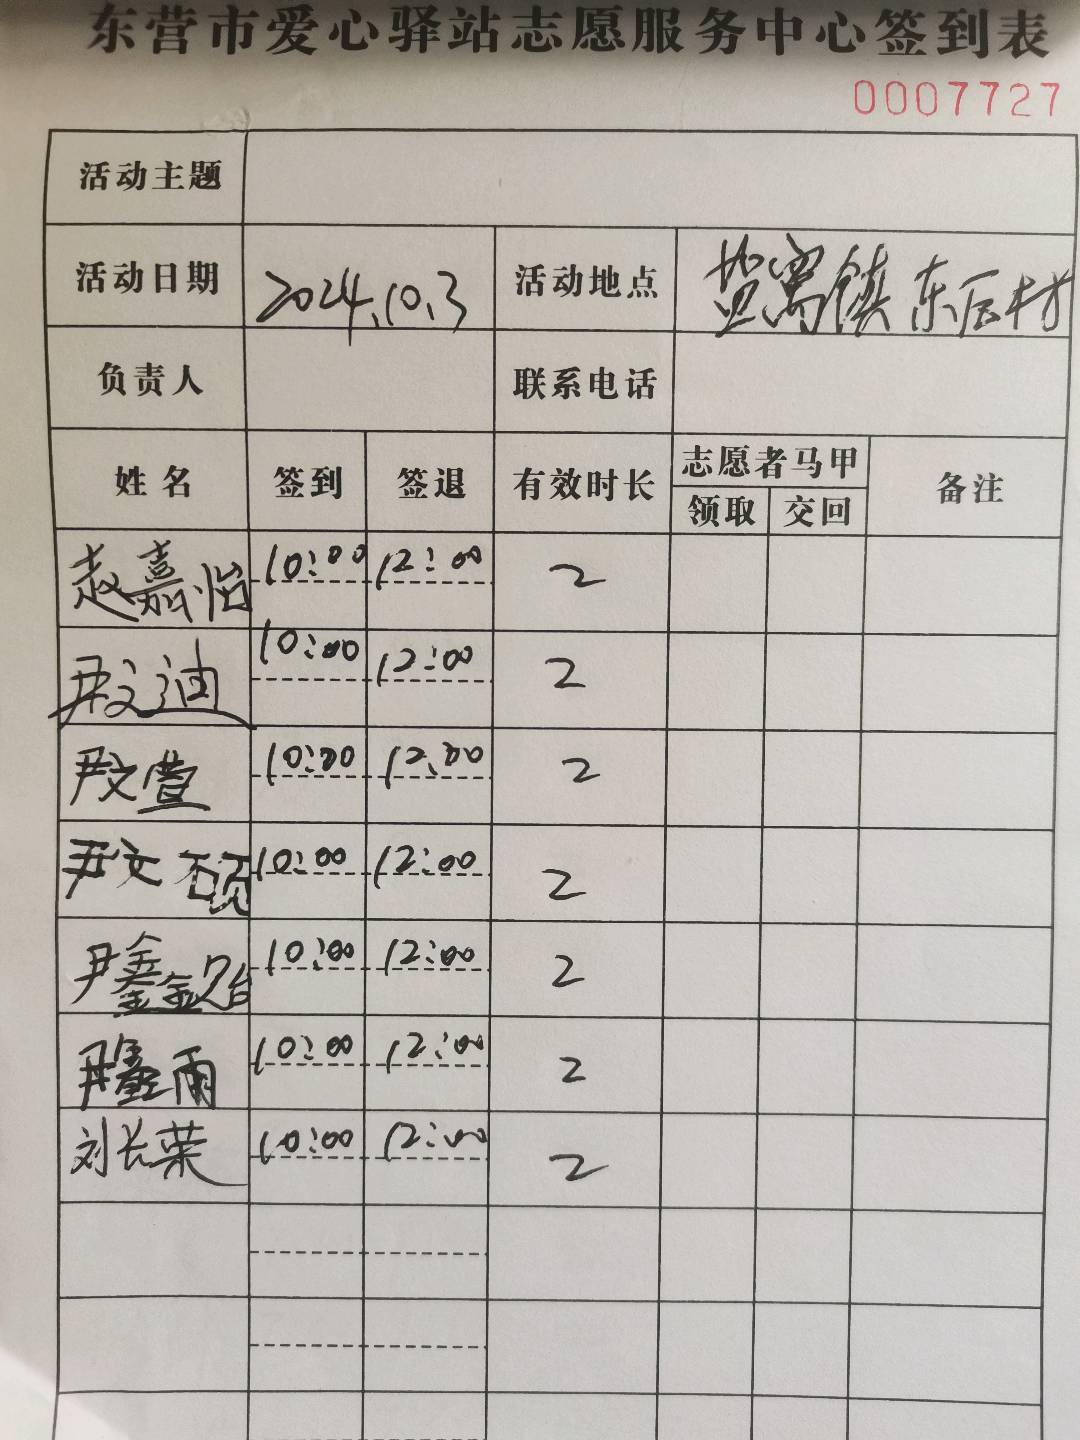 东营市爱心驿站志愿服务中心签到表
0007727
活动主题
活动日期 2024.10.3 活动地点 盐窝镇东后村
负责人 联系电话
姓名 签到 签退 有效时长 志愿者马甲 备注
领取 交回
赵嘉怡 10:00 12:00 2
尹文迪 10:00 12:00 2
尹文萱 10:00 12:00 2
尹文硕 10:00 12:00 2
尹鑫 10:00 12:00 2
尹鑫雨 10:00 12:00 2
刘长荣 10:00 12:00 2